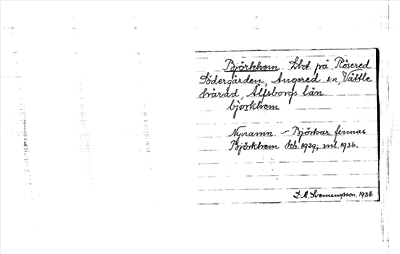 Björkhem Lht på Rösered
Södergården, Angered sn, Vättle
härad Älfsborgs län
björkhem
Nynamn – Björkar finnas
Björkhem 1929; 1936.
1938